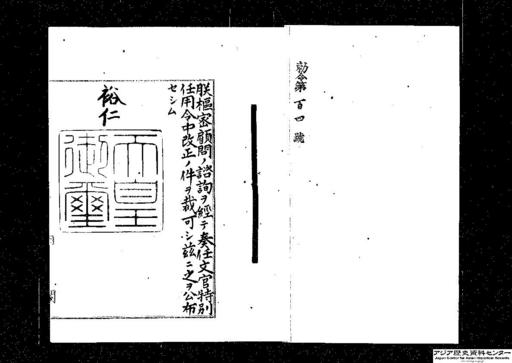 勅令第百四號
朕樞密顧問ノ諮詢ヲ經テ奏任文官特別
任用令中改正ノ件ヲ裁可シ茲ニ之ヲ公布
セシム
裕仁
天皇
御璽
閣
アジア歴史資料センター
Japan Center for Asian Historical Records